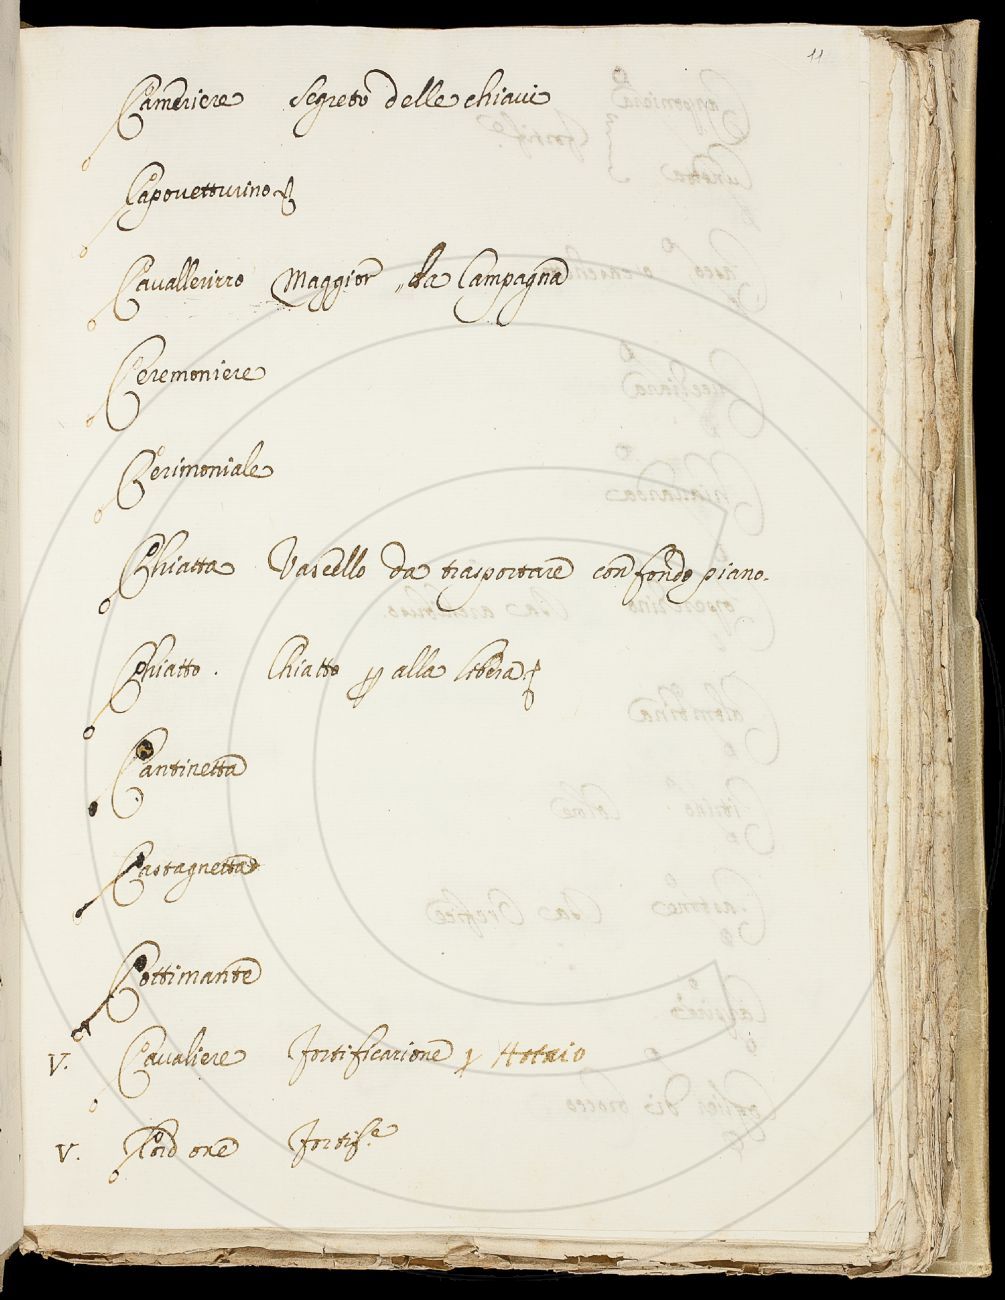 11
Cameriere segreto delle chiavi
Capovetturino
Cavallerizzo Maggior da Campagna
Ceremoniere
Cerimoniale
Chiatta Vascello da trasportare con fondo piano.
Chiatto. Chiatto alla
Cantinetta
Castagnetta
Cottimante
V. Cavaliere Fortificazione
V. Cordone Fortif.e